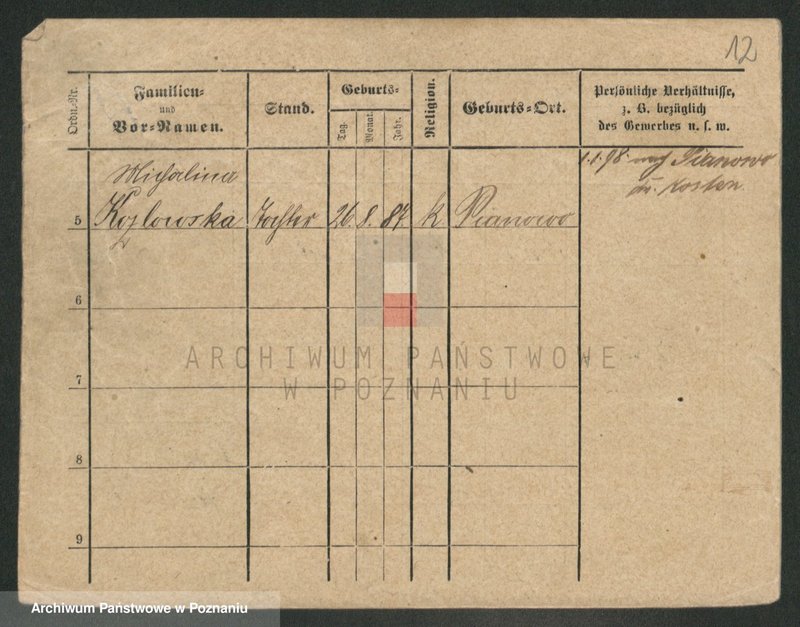 12
Ordn.-Nr.
Familien-
und
Vor-Namen.
Stand.
Geburts-
Tag.
Monat.
Jahr.
Religion.
Geburts-Ort.
Persönliche Verhältnisse,
z. B. bezüglich
des Gewerbes u. s. w.
Michalina
5 Kozlowska Tochter 26. 8. 87. k Pianowo
1.1.98. nach Pianowo
Kr. Kosten
6
7
8
9
ARCHIWUM PAŃSTWOWE
W POZNANIU
Archiwum Państwowe w Poznaniu